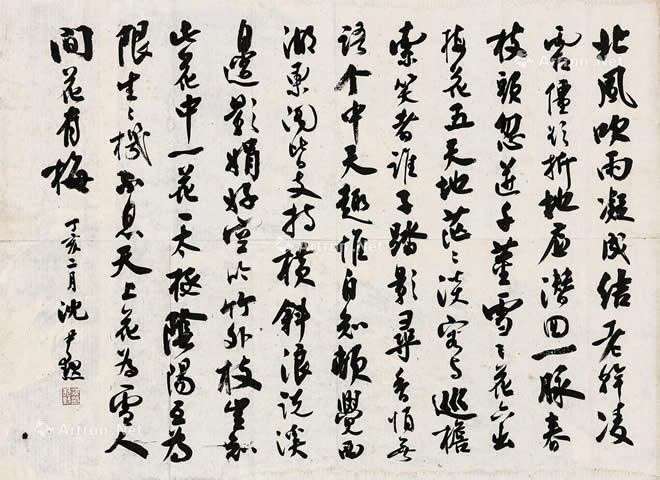 北風吹雨凝成結老幹凌
雲僵欲折地底潛回一脈春
枝頭忽迸千雪〻花六出
梅花五天地茫〻淡容与巡檐
索笑者誰子踏影尋香悄無
語个中天趣惟自知頓覺西
湖東閣皆支持橫斜浪説溪
邊影娟好空吟竹外枝豈知
此花中一花一太極陰陽互為
限生〻機不息天上花為雪人
間花有梅
丁亥二月沈尹默
Artron.Net